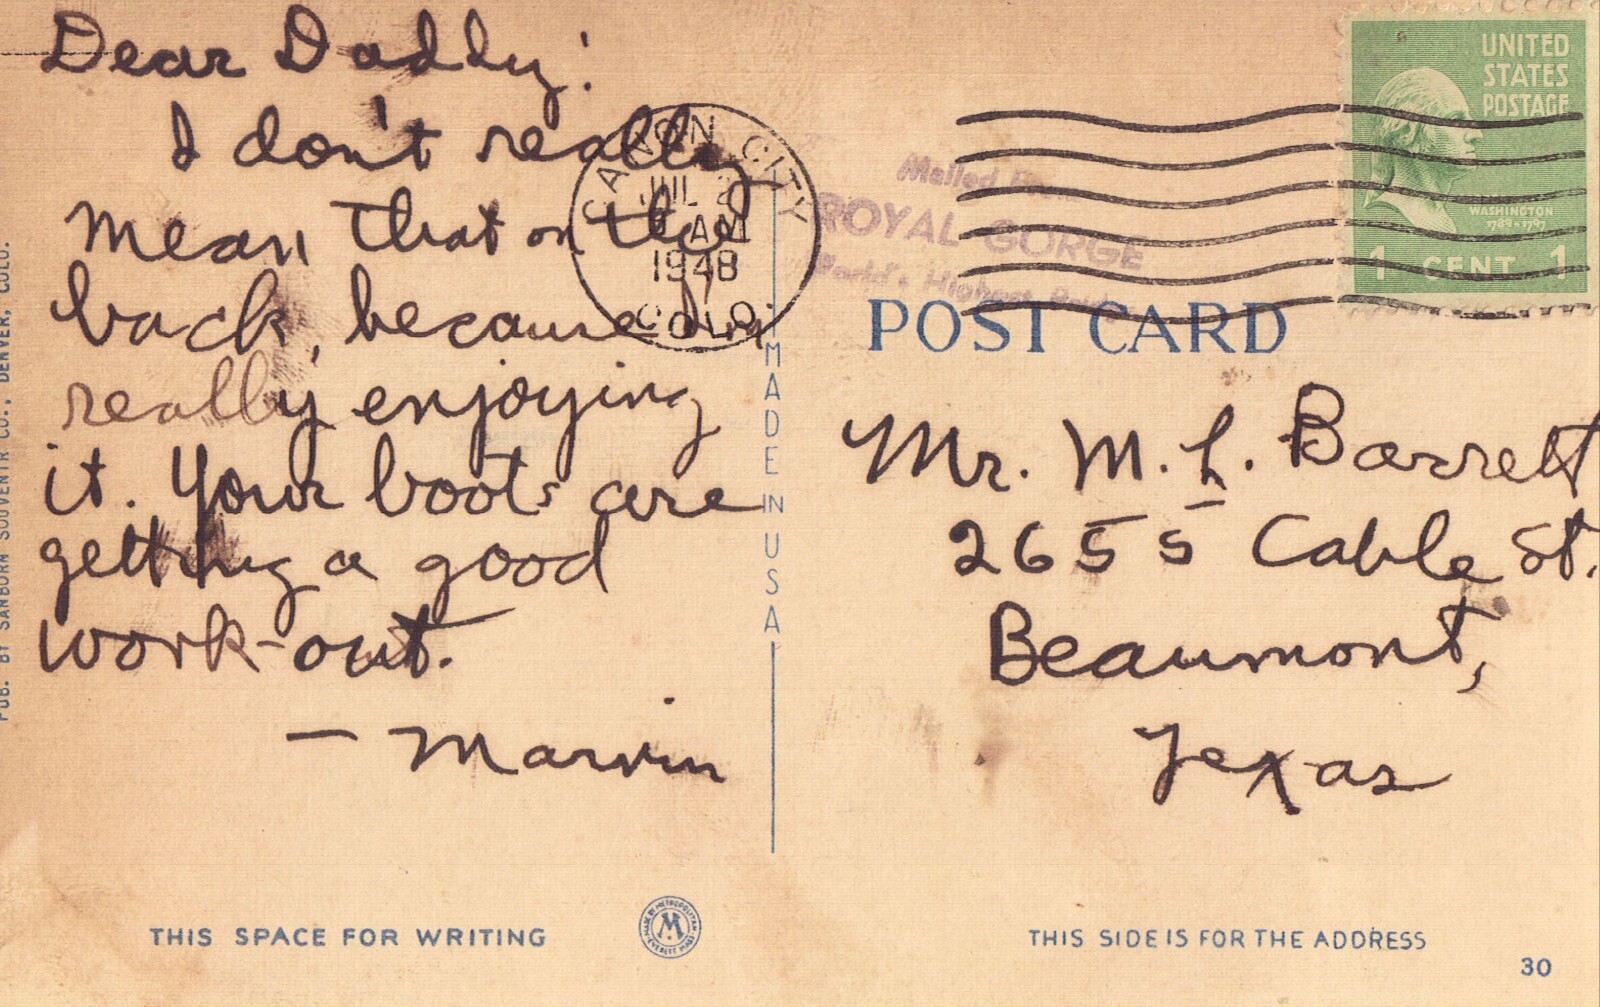 Dear Daddy:
I don't really
mean that on the
back, because I'm
really enjoying
it. Your boots are
getting a good
work-out.
— Marvin
THIS SPACE FOR WRITING
PUB. BY SANBORN SOUVENIR CO., DENVER, COLO.
CANON CITY
JUL
AM
1948
COLO.
MADE IN USA
MADE BY METROPOLITAN
M
EVERETT MASS
Mailed From
ROYAL GORGE
World's Highest Bridge
UNITED
STATES
POSTAGE
WASHINGTON
1789-1797
1 CENT 1
POST CARD
Mr. M. L. Barrett
2655 Cable St.
Beaumont,
Texas
THIS SIDE IS FOR THE ADDRESS
30